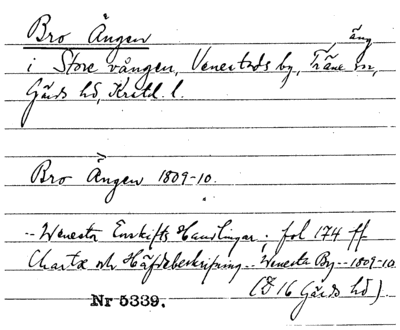 Bro Ängen äng
i Store vången, Venestads by, Träne sn,
Gärds hd, Kristd. l.
Bro Ängen 1809-10.
-- Wenesta Enskifts Handlingar; fol 174 ff
Chartæ och Häfdebeskrifning -- Wenesta By -- 1809-10
(I 16 Gärds hd).
Nr 5339.